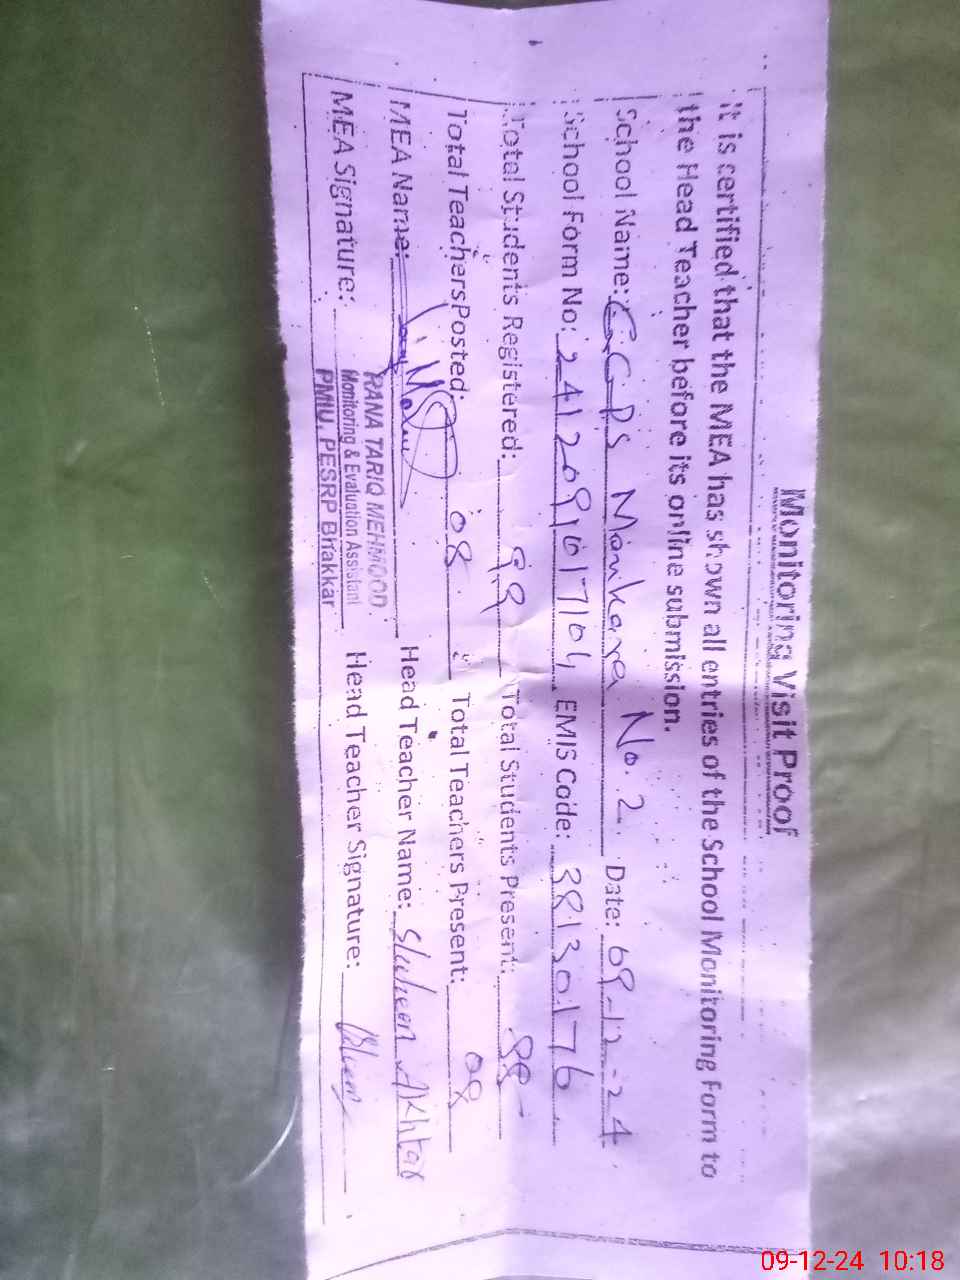 Monitoring Visit Proof
It is certified that the MEA has shown all entries of the School Monitoring Form to
the Head Teacher before its online submission.
School Name: GGPS Mankera No. 2. Date: 09-12-24
School Form No: 2412091017104 EMIS Code: 38130176
Total Students Registered: 99 Total Students Present: 88
Total Teachers Posted: 08 Total Teachers Present: 08
MEA Name: Head Teacher Name: Shaheen Akhtar
RANA TARIQ MEHMOOD
Monitoring & Evaluation Assistant
PMIU, PESRP Bhakkar
MEA Signature: Head Teacher Signature:
09-12-24 10:18